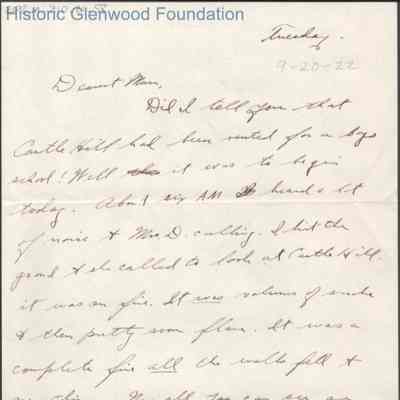 Historic Glenwood Foundation
Tuesday.
9-20-22
Dearest Mom,
Did I tell you that
Castle Hill had been rented for a boys
school! Well it was to begin
today. About six AM I heard a lot
of noise & Mrs D. calling. I hit the
& she called to look at Castle Hill.
it was on fire. It was volumes of smoke
& then pretty soon flame. It was a
complete fire all the walls fell &
all you can see are